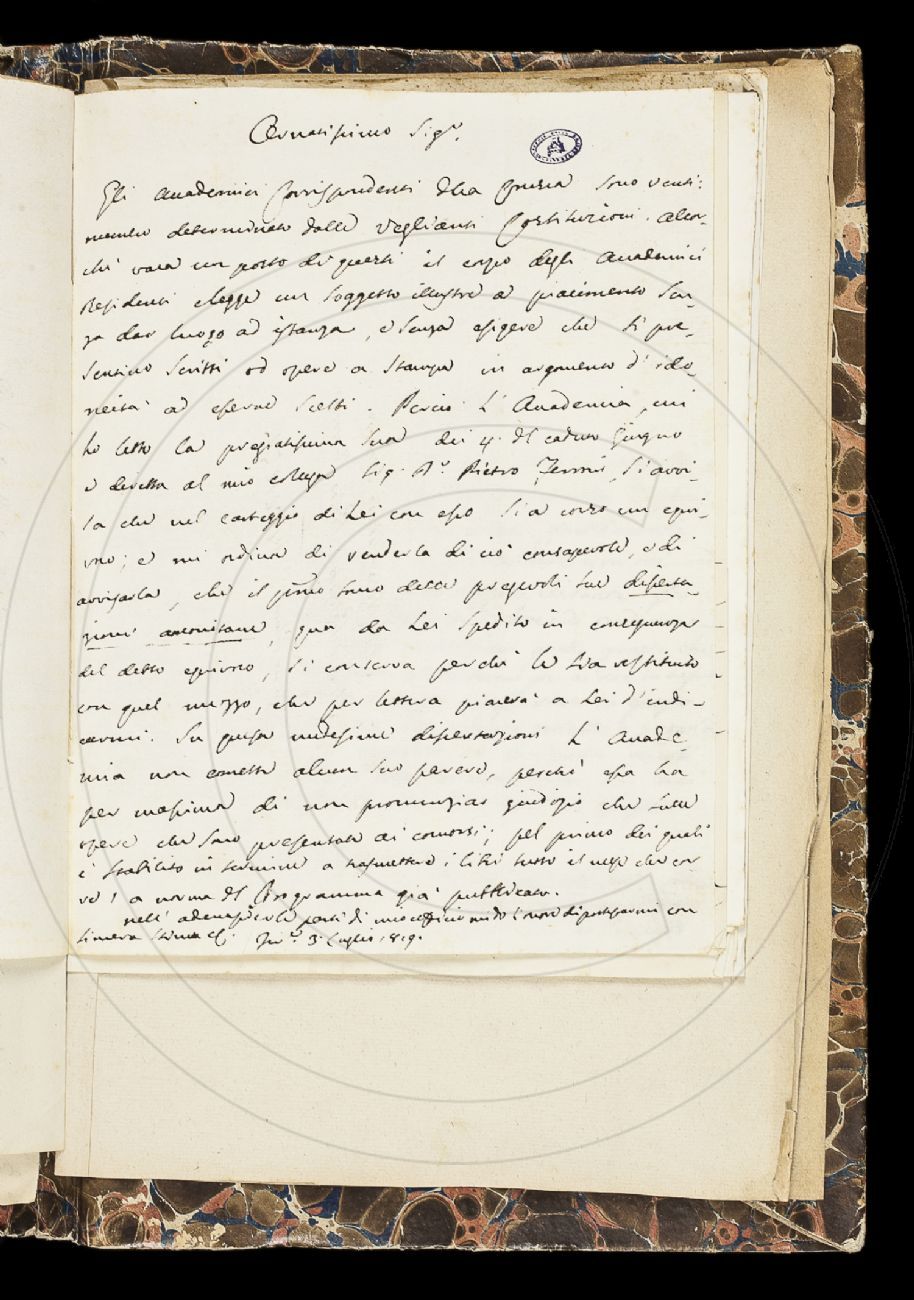 Ornatissimo Sigr.
Gli Academici Corrispondenti della Crusca sono venti:
numero determinato dalle veglianti Costituzioni. Allor-
ché vaca un posto di questi il corpo degli Academici
Residenti elegge un soggetto illustre a piacimento sen-
za dar luogo ad istanza, e senza esigere che si pre-
sentino scritti od opere a stampa in argomento d'ido-
neità ad essere scelti. Perciò l'Academia, cui
ho letto la pregiatissima sua dei 4. del caduto Giugno
e diretta al mio collega Sig. Pietro Ferroni, si avvi-
sa che nel carteggio di Lei con esso sia corso un equi-
voco; e mi ordina di renderla di ciò consapevole, e di
avvisarla, che il primo tomo delle pregevoli sue disserta-
zioni anconitane, qua da Lei spedito in conseguenza
del detto equivoco, si conserva perché le sia restituito
con quel mezzo, che per lettera piacerà a Lei d'indi-
carmi. Su queste medesime dissertazioni l'Acade-
mia non emette alcun suo parere, perché essa ha
per massima di non pronunziar giudizio che sulle
opere che sono presentate ai concorsi; pel primo dei quali
è stabilito in termine a trasmettere i libri tutto il mese che cor-
re, a norma del Programma già pubblicato.
nell'adempiere le parti di mio officio mi do l'onore di protestarmi con
sincera stima ec. 3 Luglio 1819.